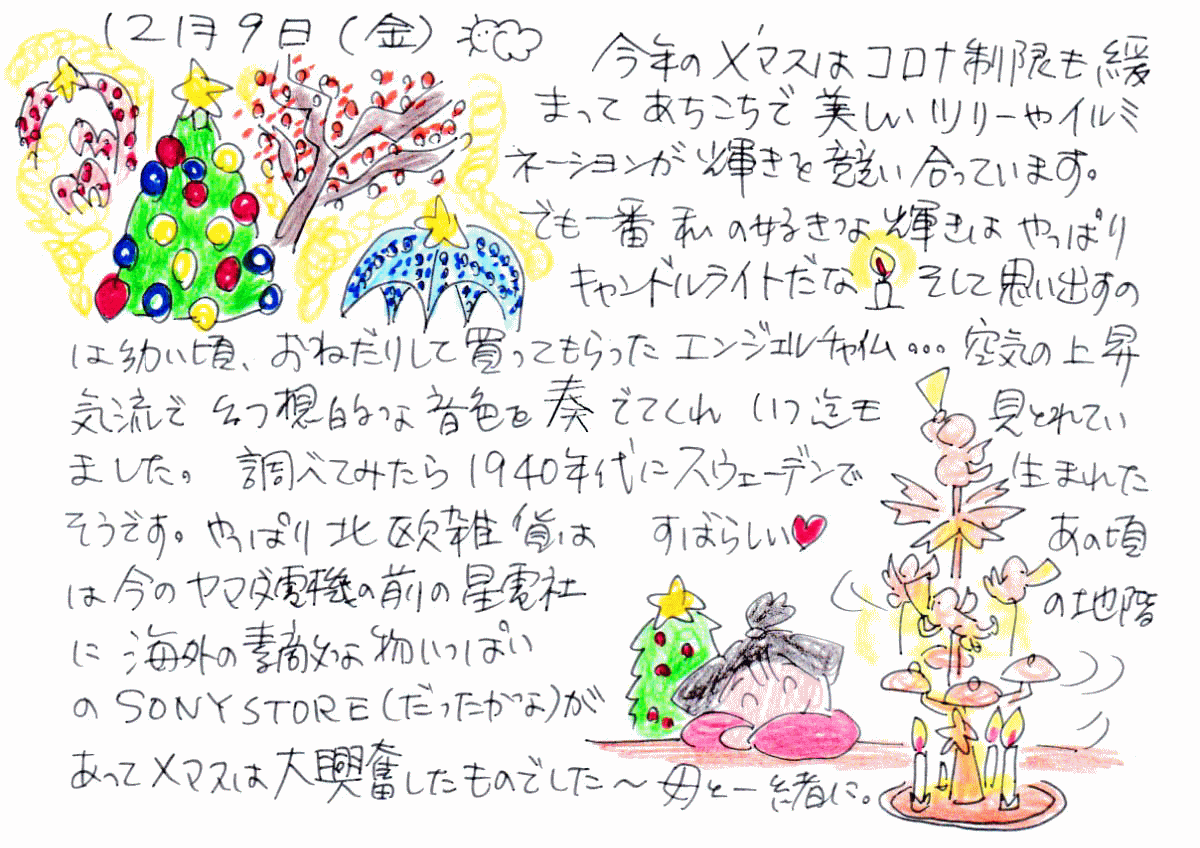 12月9日(金)
今年のX'マスはコロナ制限も緩
まってあちこちで美しいツリーやイルミ
ネーションが輝きを競い合っています。
でも一番私の好きな輝きはやっぱり
キャンドルライトだな そして思い出すの
は幼い頃、おねだりして買ってもらったエンジェルチャイム…空気の上昇
気流で幻想的な音色を奏でてくれいつ迄も見とれてい
ました。調べてみたら1940年代にスウェーデンで生まれた
そうです。やっぱり北欧雑貨はすばらしい♥あの頃
は今のヤマダ電機の前の星電社の地階
に海外の素敵な物いっぱい
のSONYSTORE(だったかな)が
あってXマスは大興奮したものでした〜母と一緒に。